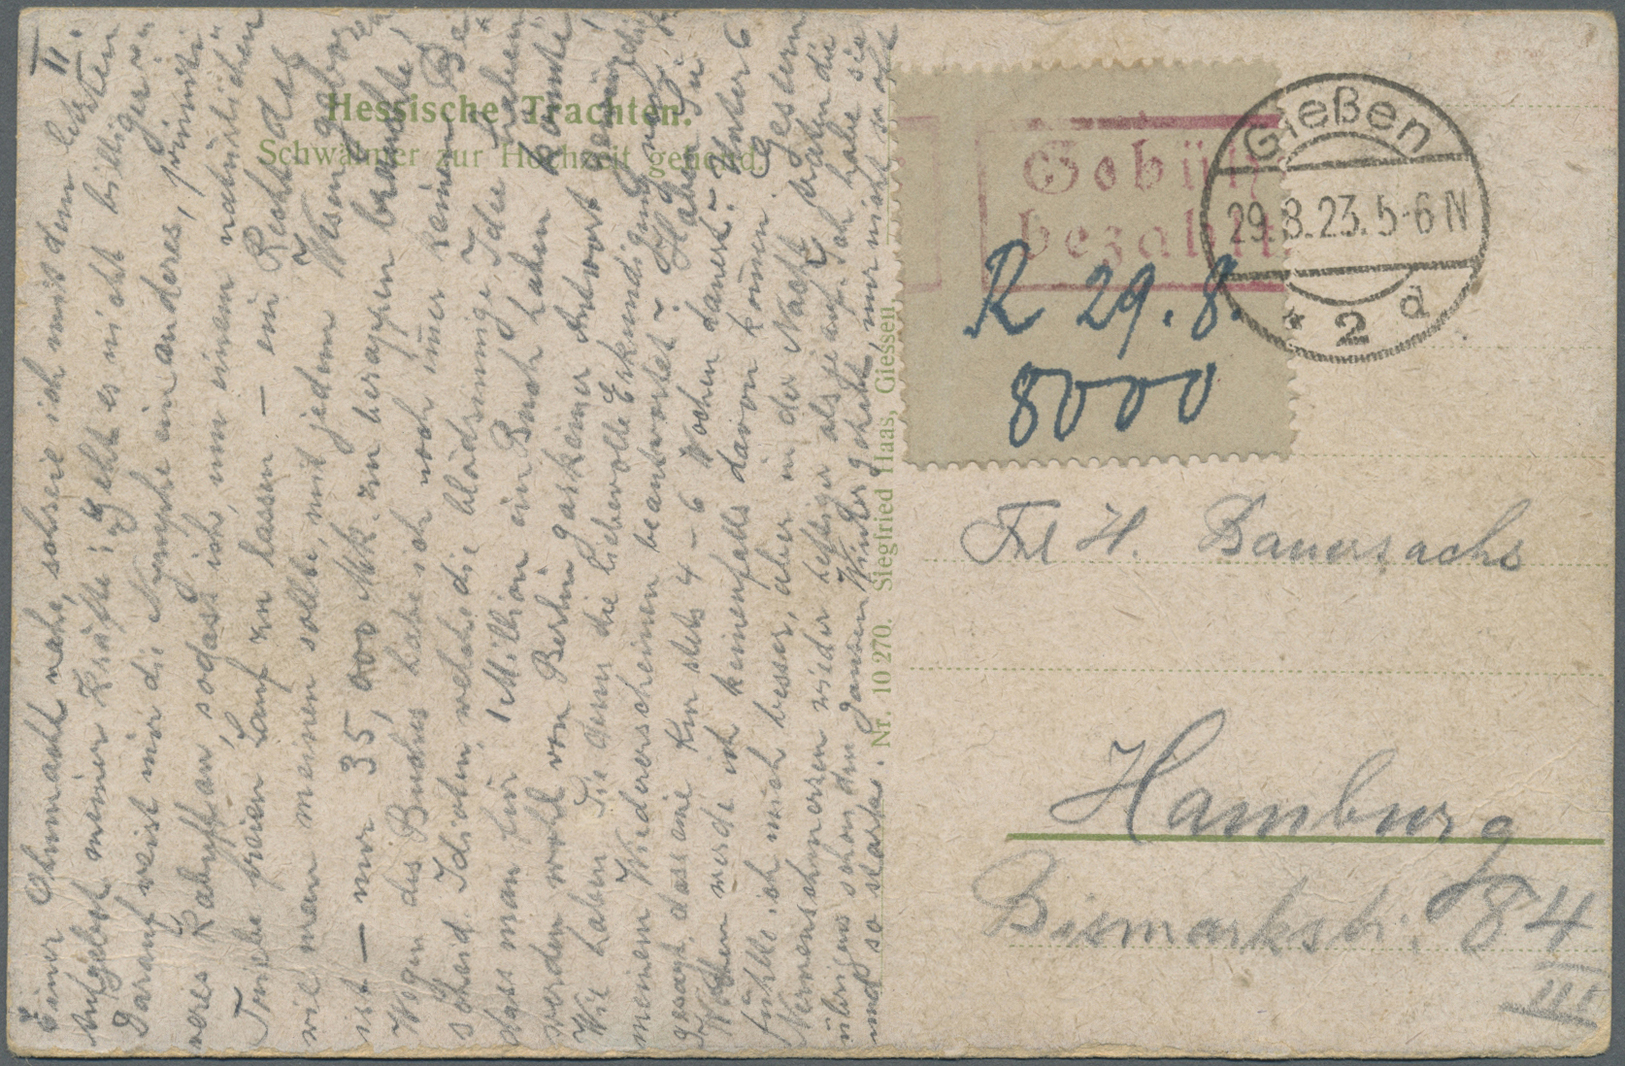 II.
Einer Ohnmacht nahe, schreie ich mit dem letzten
Aufgebot meiner Kräfte: Geht es nicht billiger?
Darauf weist mir die Nymphe ein anderes, primiti-
veres Kabuff an, sodass ich, um einem natürlichen
Triebe freien Lauf zu lassen – ein Recht das
wie man meinen sollte, mit jedem Wesen geboren
ist – nur 35,000 Mk. zu berappen brauchte!
Wegen des Buches habe ich noch immer keinen Be-
scheid. Idioten, welche die blödsinnige Idee haben
dass man für 1 Million ein Buch haben könnte
werden wohl von Berlin gar keiner Antwort
Wie haben Sie denn die liebevolle Erkundigung nach
meinem Wiedererscheinen beantwortet? Haben Sie
gesagt, dass eine Kur stets 4 – 6 Wochen dauert? Unter 6
Wochen werde ich keinenfalls davon kommen.
fühle ich mich besser, aber in der Nacht
Nervenschmerzen wieder heftiger als je auf. Ich habe sie
übrigens schon den ganzen Winter gehabt, nur nicht so oft
und so stark.
Hessische Trachten.
Schwälmer zur Hochzeit gehend
Nr. 10 270. Siegfried Haas, Giessen
Gebühr
bezahlt
R 29. 8.
8000
Gießen
29.8.23. 5-6 N
* 2 d
Frl H. Bauersachs
Hamburg
Bismarkstr. 84
III